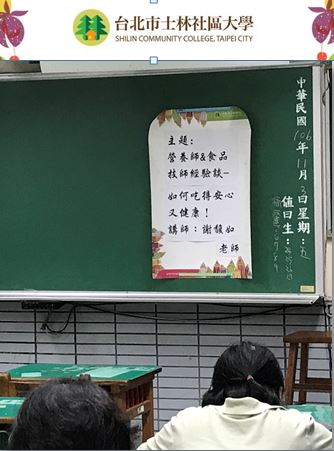 台北市士林社區大學
SHILIN COMMUNITY COLLEGE, TAIPEI CITY
主題:
營養師&食品
技師經驗談-
如何吃得安心
又健康!
講師:謝馥如
老師
中華民國106年11月3日星期:五
值日生: